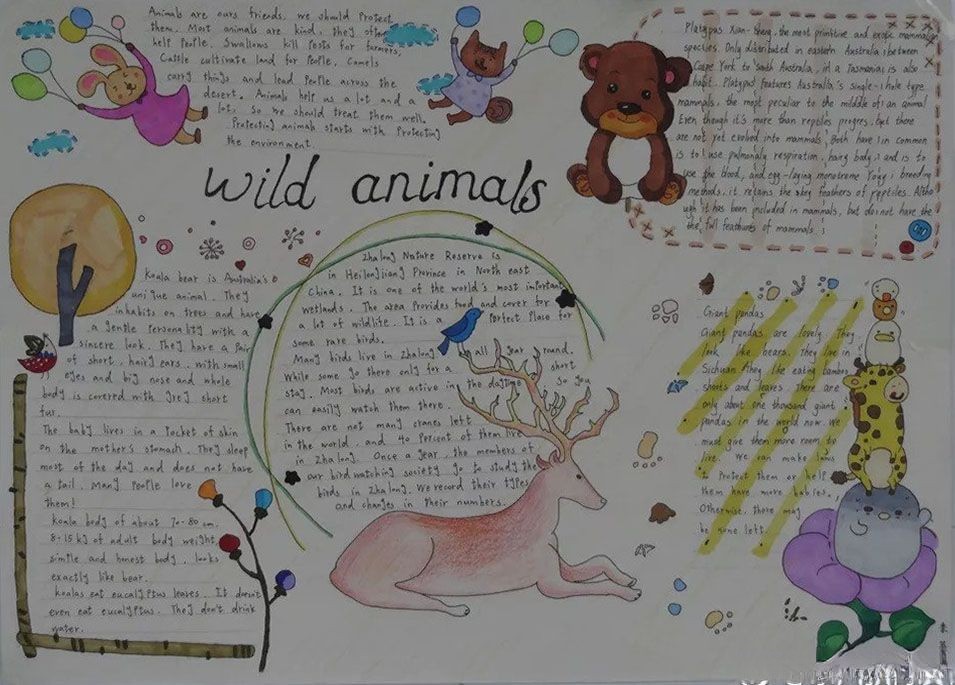 Animals are ours friends, we should Protect
them. Most animals are kind. They often
help People. Swallows kill Pests for farmers,
Cattle cultivate land for People. Camels
carry things and lead People across the
desert. Animals help us a lot and a
lot, so we should treat them well.
Protecting animals starts with Protecting
the environment.
wild animals
Platypus Xian-Sheng, the most primitive and exotic mammalian
species. Only distributed in eastern Australia between
Cape York to South Australia, in a Tasmania is also
habit. Platypus features Australia's single-hole type
mammals, the most peculiar to the middle of an animal
Even though it's more than reptiles progres, but there
are not yet evolved into mammals. Both have in common
is to use pulmonary respiration, hairy body; and is to
use the blood, and egg-laying monotreme breeding
methods, it retains the feathers of reptiles. Altho
ugh it has been included in mammals, but do not have the
the full feathurs of mammals
koala bear is Australia's
unique animal. They
inhabits on trees and have
a gentle Personality with a
sincere look. They have a Pair
of short, hairy ears, with small
eyes and big nose and whole
body is covered with grey short
fur.
The baby lives in a Pocket of skin
on the mother's stomach. They sleep
most of the day and does not have
a tail. Many People love
them!
koala body of about 70-80 cm.
8-15 kg of adult body weight,
simile and honest body, looks
exactly like bear.
koalas eat eucalyptus leaves. It doesn't
even eat eucalyptus. They don't drink
water.
Zhalong Nature Reserve is
in Heilongjiang Province in North east
China. It is one of the world's most important
wetlands. The area Provides food and cover for
a lot of wildlife. It is a Perfect Place for
some rare birds.
Many birds live in Zhalong all year round.
While some go there only for a short
stay. Most birds are active in the daytime so you
can easily watch them there.
There are not many cranes left
in the world, and 40 Percent of them live
in Zhalong. Once a year, the members of
our bird watching society go to study the
birds in Zhalong. We record their types
and changes in their numbers.
Giant Pandas
Giant pandas are lovely. They
look like bears. They live in
Sichuan. They like eating bamboo
shoots and leaves. There are
only about one thousand giant
pandas in the world now. We
must give them more room to
live. We can make laws
to Protect them or help
them have more babies.
Otherwise, there may
be none left.